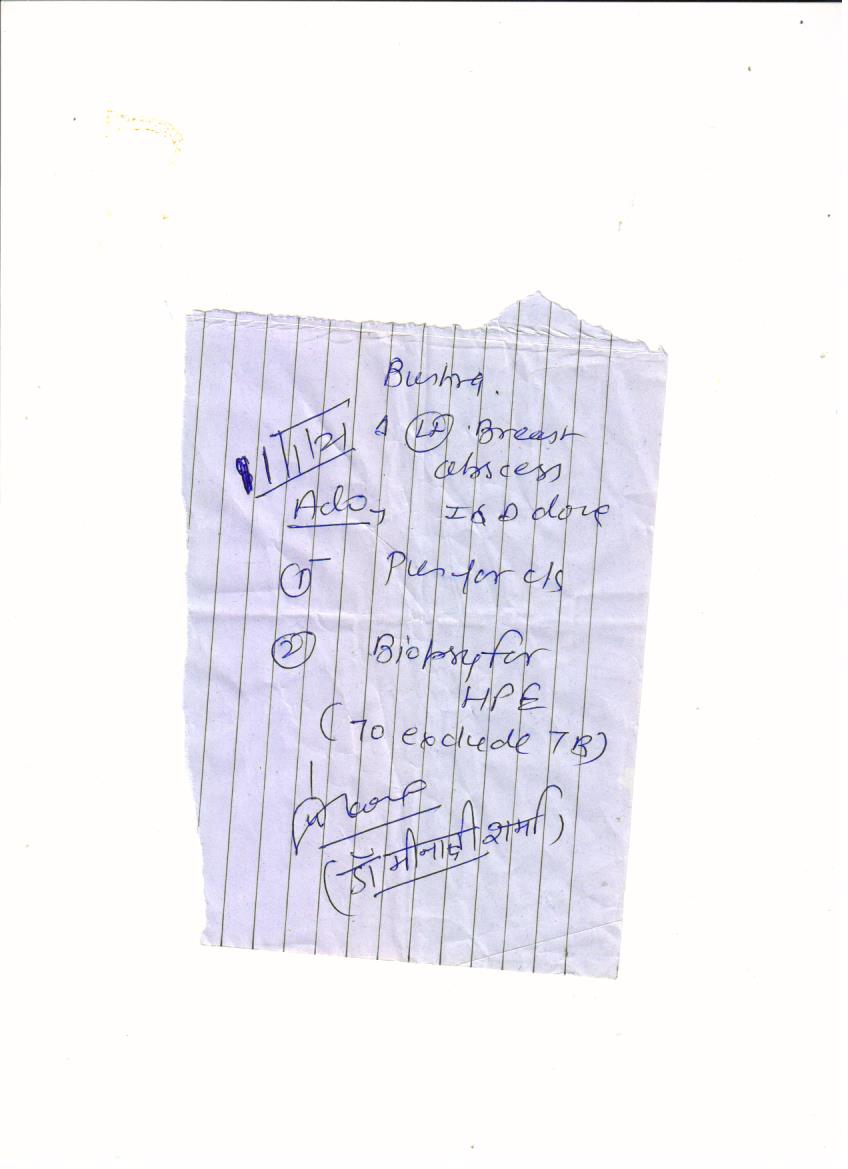 Bushra.
1/1/21 Δ (Lt) Breast
abscess
Adv, I & D done
① Pus for c/s
② Biopsy for
HPE
(To exclude TB)
(डॉ मीनाक्षी शर्मा)